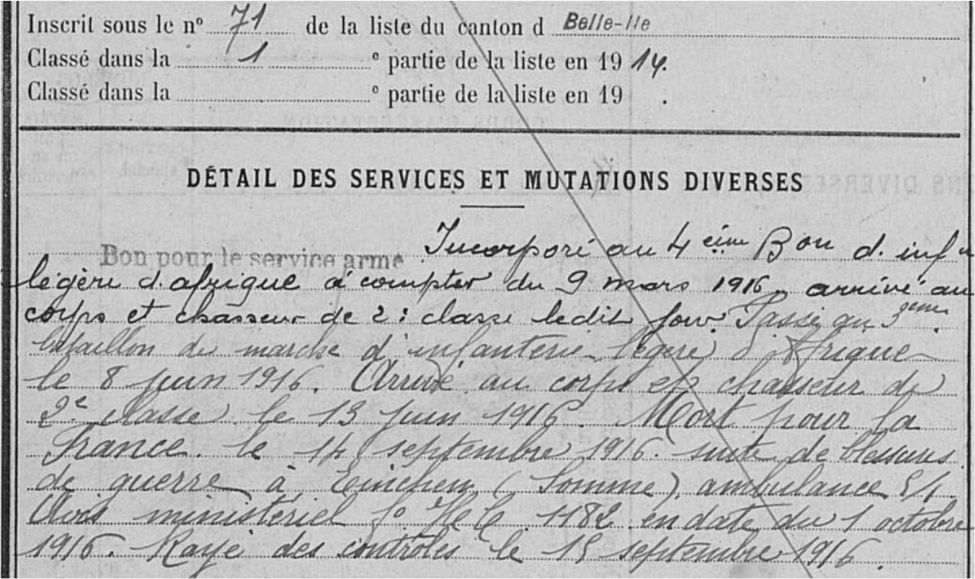 Inscrit sous le n° 71 de la liste du canton d Belle-Ile
Classé dans la 1 e partie de la liste en 19 14.
Classé dans la e partie de la liste en 19 .
DÉTAIL DES SERVICES ET MUTATIONS DIVERSES
Bon pour le service armé
Incorporé au 4 eime Bon d. infie
légère d'afrique à compter du 9 mars 1916. arrivé au
corps et chasseur de 2e classe ledit jour. Passé au 3ème
bataillon de marche d'infanterie légère d'Afrique
le 8 juin 1916. Arrivé au corps et chasseur de
2e classe le 13 juin 1916. Mort pour la
France. le 14 septembre 1916. suite de blessures
de guerre à (Somme) ambulance 5/1
Avis ministériel 1182 en date du 1 octobre
1916. Rayé des contrôles le 15 septembre 1916.